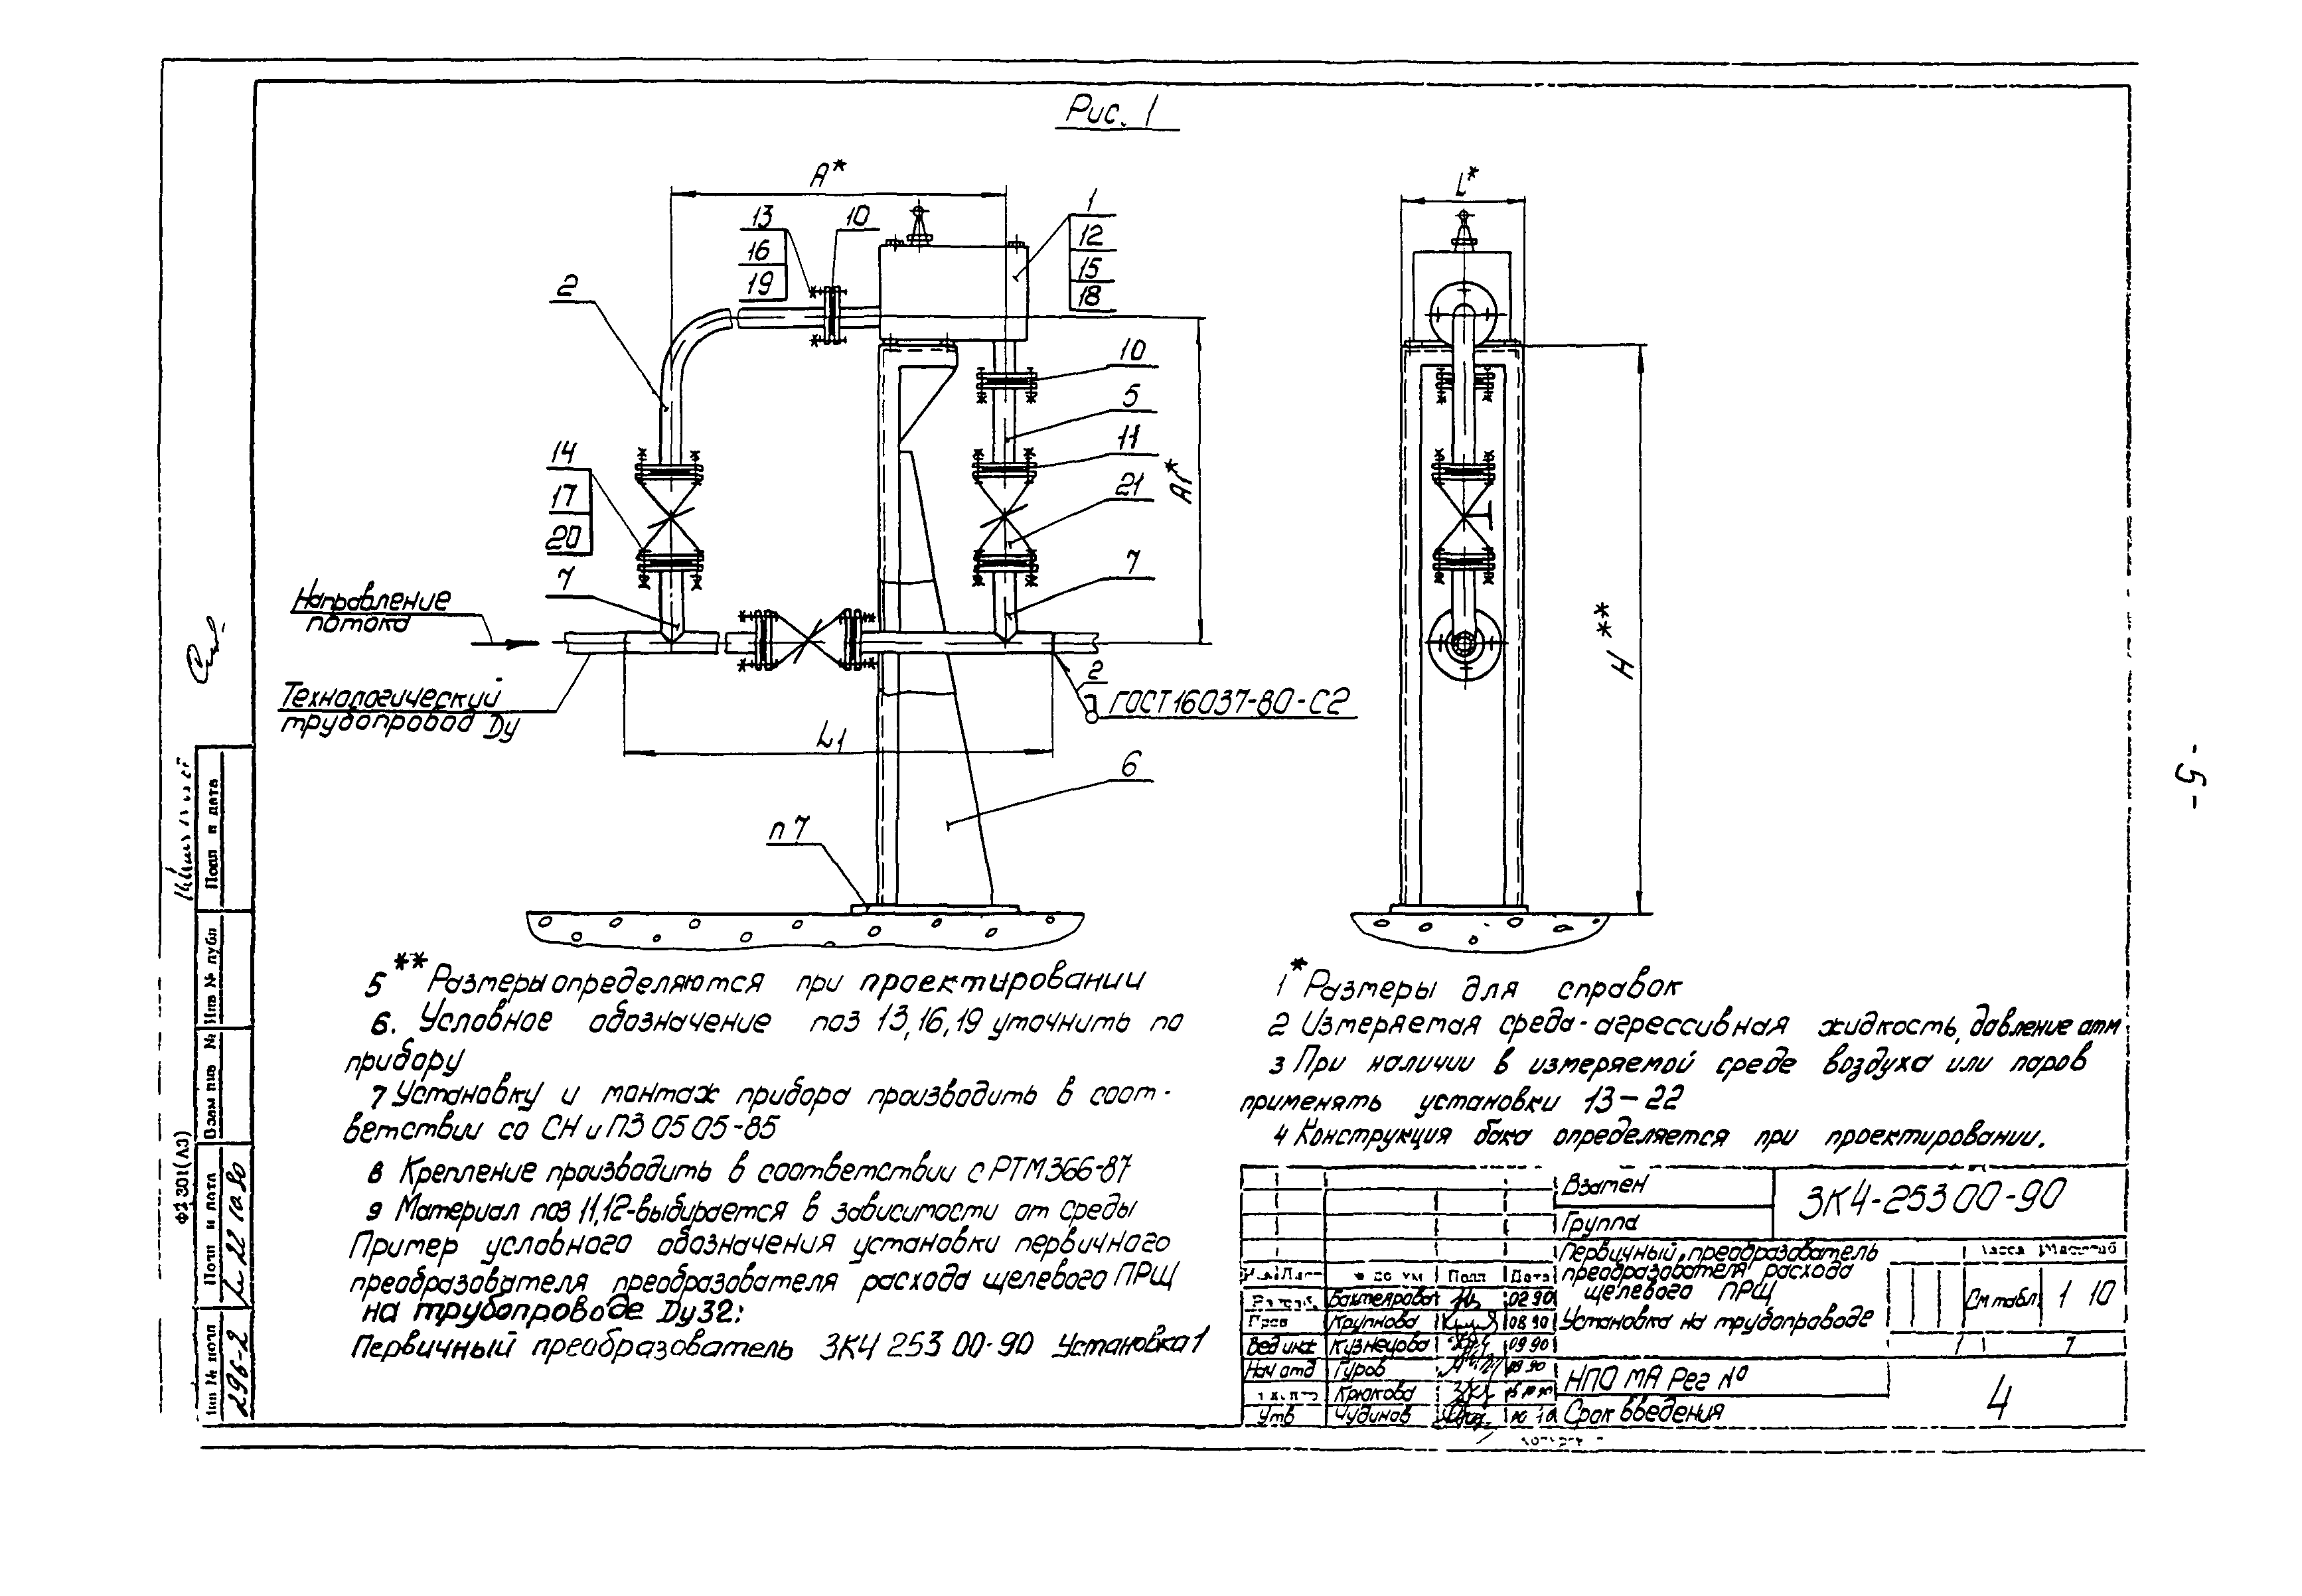 Рис. 1
А*
13
16
19
10
1
12
15
18
2
10
5
11
21
7
14
17
20
7
А1*
Направление
потока
Технологический
трубопровод Dу
2
ГОСТ 16037-80-С2
L1
6
п 7
L*
Н**
-5-
5 ** Размеры определяются при проектировании
6. Условное обозначение поз 13,16,19 уточнить по
прибору
7 Установку и монтаж прибора производить в соот-
ветствии со СН и П3 05 05-85
8 Крепление производить в соответствии с РТМ 366-87
9 Материал поз 11,12-выбирается в зависимости от среды
Пример условного обозначения установки первичного
преобразователя преобразователя расхода щелевого ПРЩ
на трубопроводе Dу32:
Первичный преобразователь ЗК4 253 00-90 Установка 1
1 * Размеры для справок
2 Измеряемая среда-агрессивная жидкость, давление атм
3 При наличии в измеряемой среде воздуха или паров
применять установки 13-22
4 Конструкция бака определяется при проектировании.
Взамен
ЗК4-253 00-90
Группа
Первичный преобразователь
преобразователя расхода
щелевого ПРЩ
Установка на трубопроводе
Масса Масштаб
См табл 1 10
Лист № докум Подп Дата
Бахтеярова 02 90
Пров Крупнова 08 90
Вед инж Кузнецова 09 90
Нач отд Гуров 09 90
Крюкова
Утв Чудинов
НПО МА Рег №
Срок введения
4
Ф2 301(ЛЗ)
Подп и дата
Инв № дубл
Взам инв №
Подп и дата
22 10 90
Инв № подл
296-2